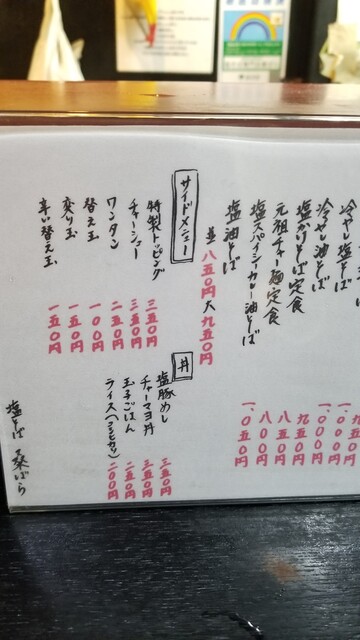 冷やし塩
冷やし油そば
定食
元祖チャー麺定食
塩スパイシーカレー油そば
塩油そば
並 八五〇円 大 九五〇円
九五〇円
一、〇〇〇円
一、〇〇〇円
九五〇円
八五〇円
八〇〇円
一、〇五〇円
サイドメニュー
特製トッピング 三五〇円
チャーシュー 三五〇円
ワンタン 二五〇円
替え玉 一〇〇円
変り玉 一五〇円
辛い替え玉 一五〇円
丼
塩豚めし 三五〇円
チャーマヨ丼 三五〇円
玉子ごはん 二五〇円
ライス(コシヒカリ) 二〇〇円
塩そば 桑ばら